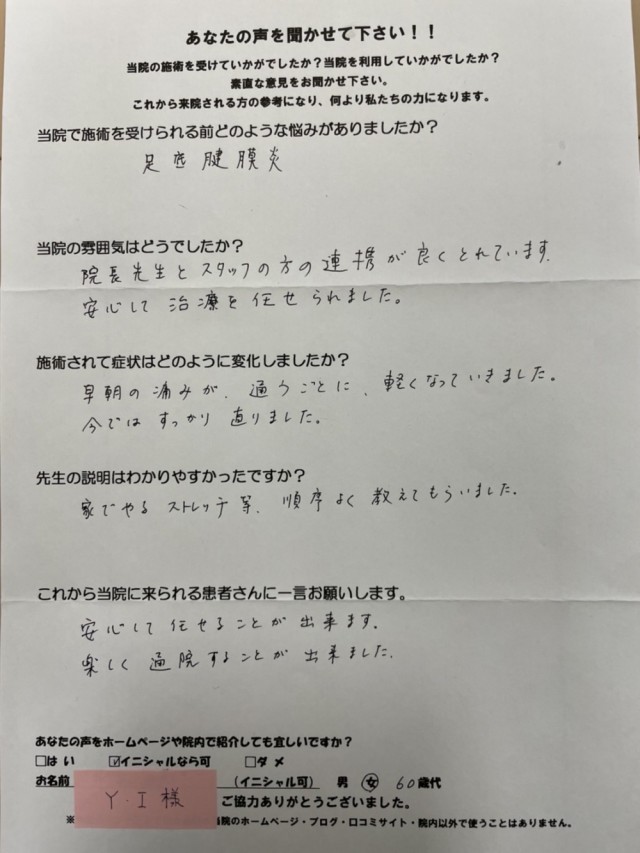 あなたの声を聞かせて下さい！！
当院の施術を受けていかがでしたか？当院を利用していかがでしたか？
素直な意見をお聞かせ下さい。
これから来院される方の参考になり、何より私たちの力になります。
当院で施術を受けられる前どのような悩みがありましたか？
足底腱膜炎
当院の雰囲気はどうでしたか？
院長先生とスタッフの方の連携が良くとれています。
安心して治療を任せられました。
施術されて症状はどのように変化しましたか？
早朝の痛みが、通うごとに、軽くなっていきました。
今ではすっかり直りました。
先生の説明はわかりやすかったですか？
家でやるストレッチ等、順序よく教えてもらいました。
これから当院に来られる患者さんに一言お願いします。
安心して任せることが出来ます。
楽しく通院することが出来ました。
あなたの声をホームページや院内で紹介しても宜しいですか？
□はい ☑イニシャルなら可 □ダメ
お名前 （イニシャル可） 男 女 60歳代
Y・I様 ご協力ありがとうございました。
※ 当院のホームページ・ブログ・口コミサイト・院内以外で使うことはありません。